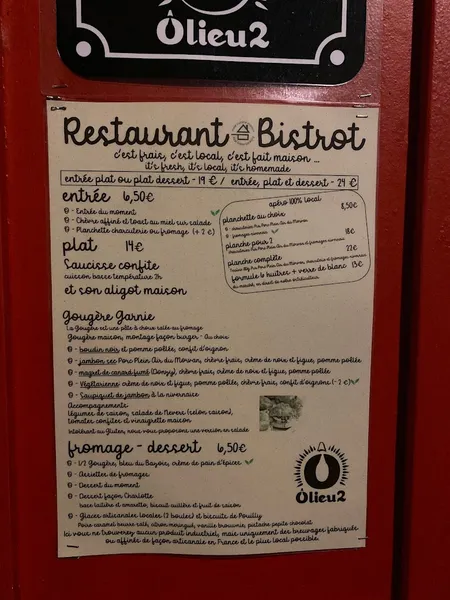 Ôlieu2
Restaurant Bistrot
c'est frais, c'est local, c'est fait maison ...
it's fresh, it's local, it's homemade
entrée plat ou plat dessert - 19 € / entrée, plat et dessert - 24 €
entrée 6,50€
- Entrée du moment
- Chèvre affiné et toast au miel sur salade
- Planchette charcuterie ou fromage (+ 2 €)
apéro 100% local
planchette au choix 8,50€
- fromages carrées
planche pour 2 18€
planche complète 22€
formule 6 huitres + verre de blanc 13€
plat 14€
Saucisse confite
cuisson basse température 7h
et son aligot maison
Gougère Garnie
La Gougère est une pâte à choux salée au fromage
Gougère maison, montage façon burger - Au choix
- boudin noir et pomme poêlée, confit d'oignon
- jambon sec Porc Plein Air du Morvan, chèvre frais, crème de noix et figue, pomme poêlée
- magret de canard fumé (Donzy), chèvre frais, crème de noix et figue, pomme poêlée
- Végétarienne: crème de noix et figue, pomme poêlée, chèvre frais, confit d'oignons (-2 €)
- Saupiquet de jambon à la nivernaise
Accompagnements:
légumes de saison, salade de Nevers (selon saison),
tomates confites et vinaigrette maison
Intolérant au Gluten, nous vous proposons une version en salade
fromage - dessert 6,50€
- 1/2 Gougère, bleu du Bazois, crème de pain d'épices
- Assiette de fromages
- Dessert du moment
- Dessert façon Charlotte
base laitière et amarette, biscuit cuillère et fruit de saison
- Glaces artisanales locales (2 boules) et biscuits de Pouilly
Poire caramel beurre salé, citron meringué, vanille brownie, pistache pépite chocolat
Ici vous ne trouverez aucun produit industriel, mais uniquement des breuvages fabriqués
ou affinés de façon artisanale en France et le plus local possible.
Ôlieu2